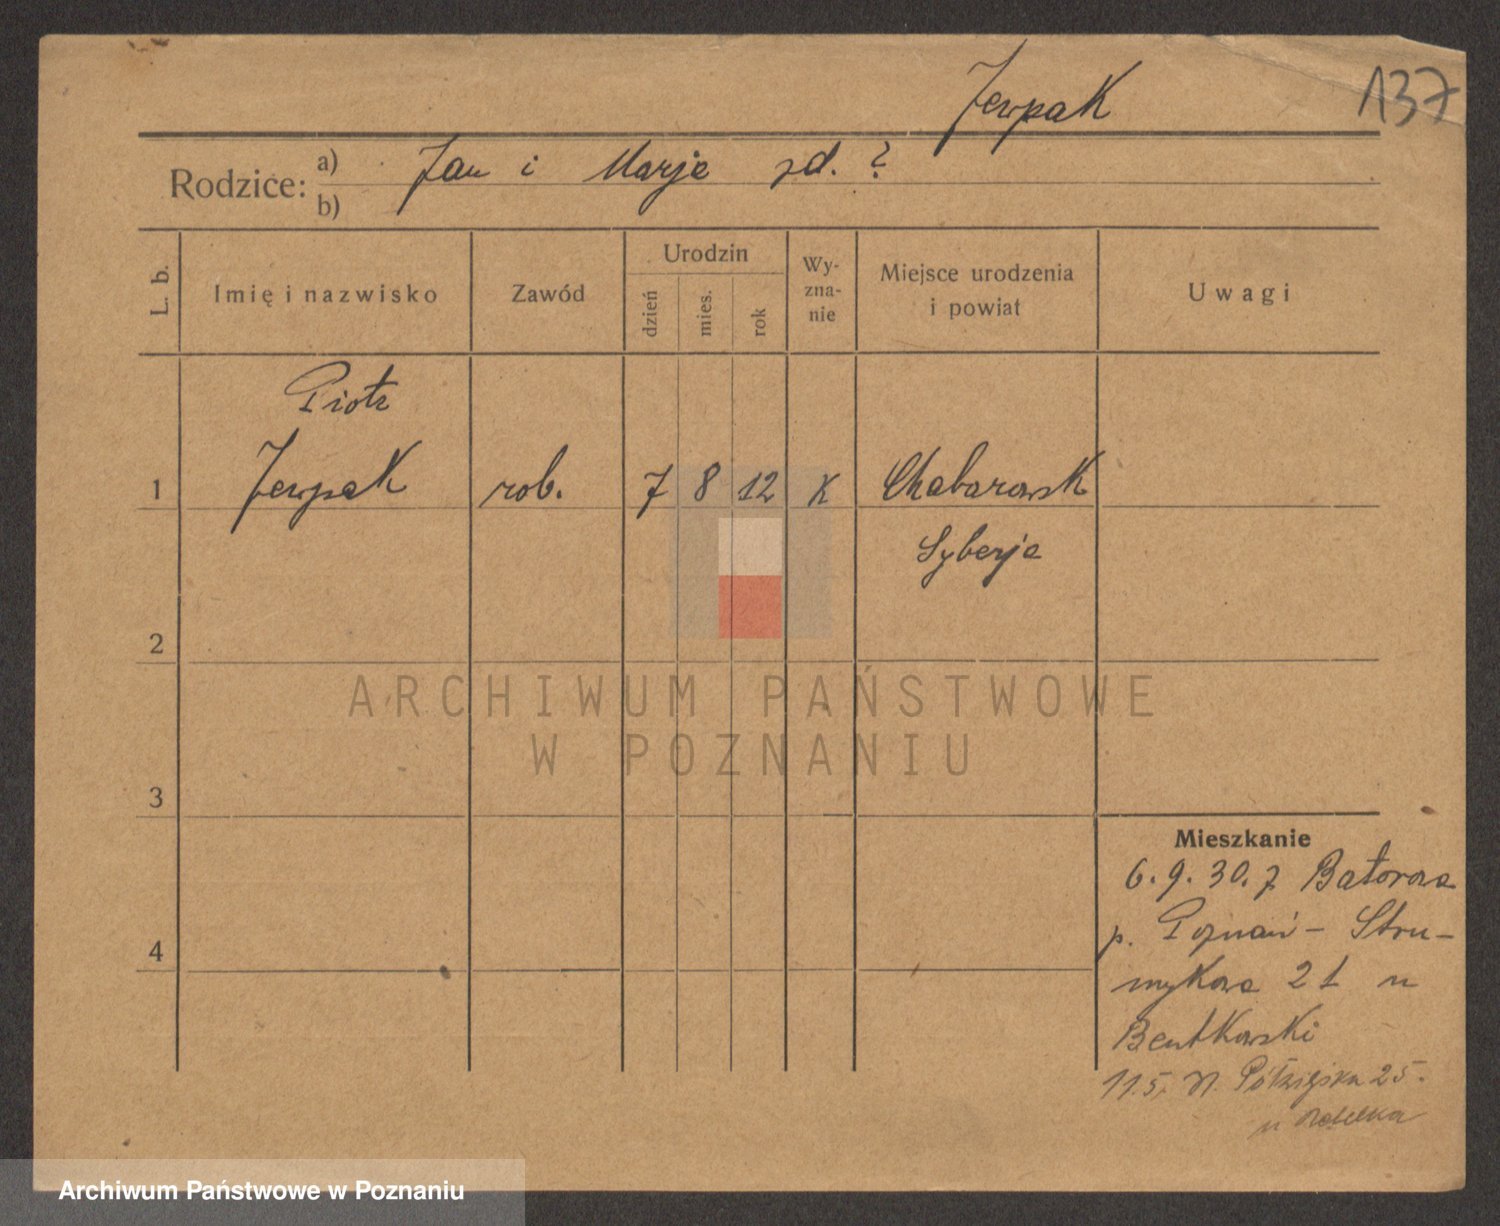 Jerpak
137
Rodzice: a) Jan i Marja zd. ?
b)
L. b.
Imię i nazwisko
Zawód
Urodzin
dzień
mies.
rok
Wy-
zna-
nie
Miejsce urodzenia
i powiat
Uwagi
Piotr
1 Jerpak rob. 7 8 12 K Chabarowsk
Syberja
2
ARCHIWUM PAŃSTWOWE
W POZNANIU
3
Mieszkanie
6. 9. 30. z Batorowa
p. Poznań - Stru-
mykowa 21 u
4
Bentkowski
11.5. 25.
u
Archiwum Państwowe w Poznaniu